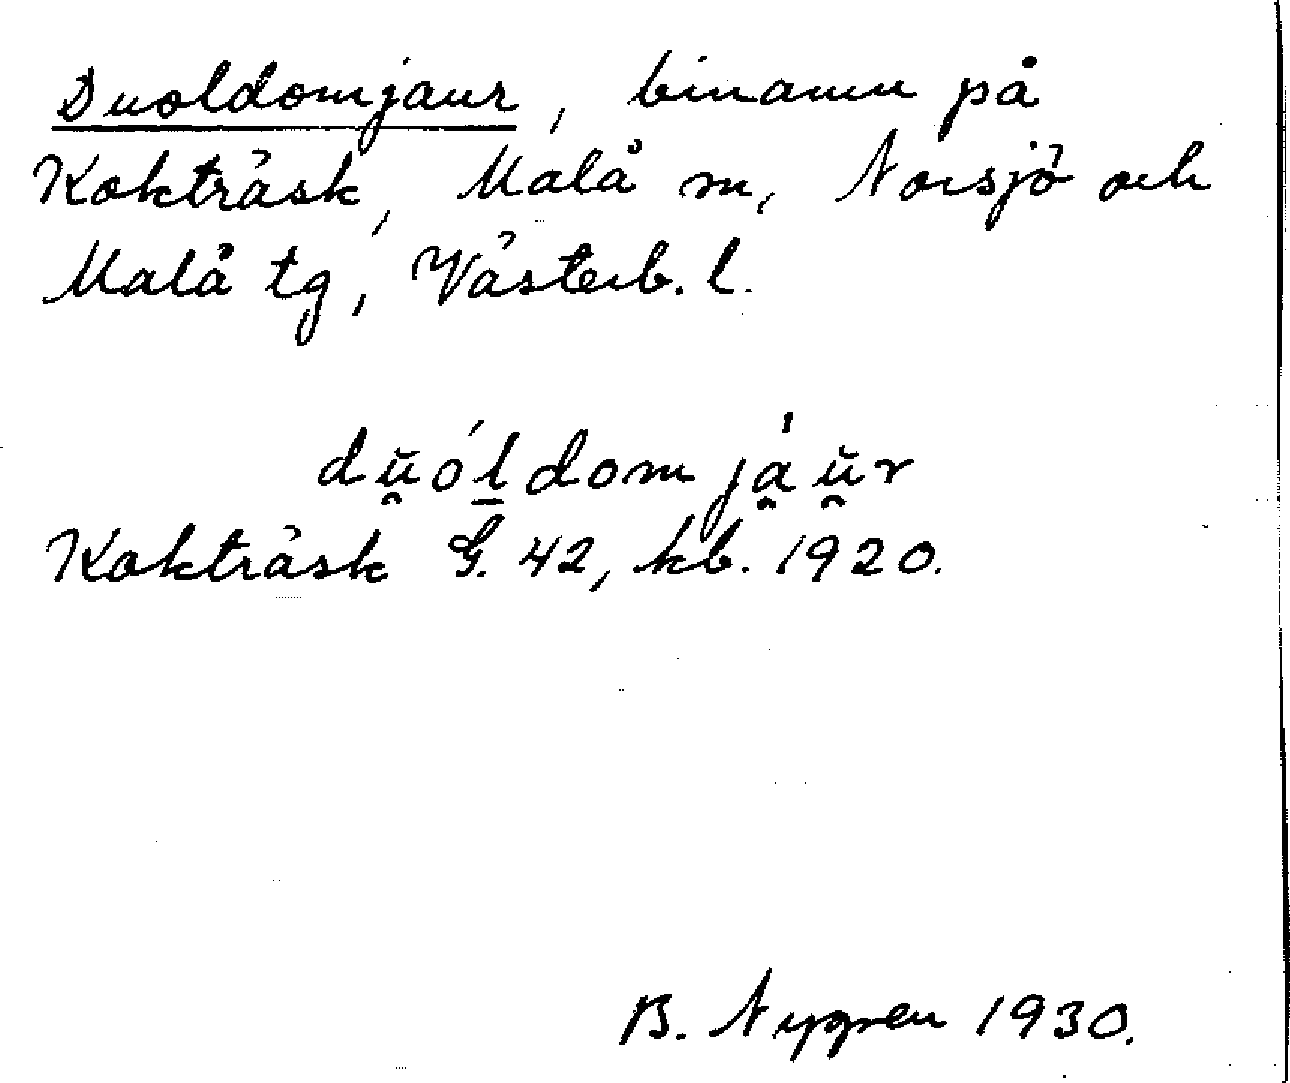 Duoldomjaur, binamn på
Kokträsk, Malå sn, Norsjö och
Malå tg, Västerb. l.
dŭ̯óḻ́dom já̯ŭ̯r
Kokträsk G. 42, kb. 1920.
B. Nygren 1930.